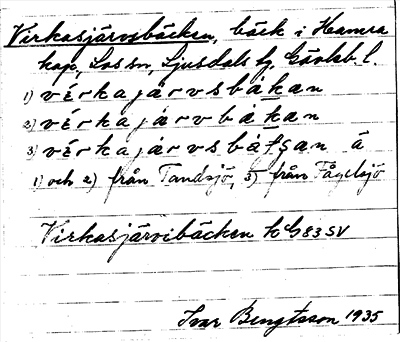 Virkasjärvsbäcken, bäck i Hamra
kap, Los sn, Ljusdals tg. Gävleb. l.
1) vérkajärvsbäkan
2) vérkajärvbäkan
3) vérkajärvsbäṯgan å
1) och 2) från Tandsjö, 3) från Fågelsjö
Virkasjärvibäcken kG83SV
Ivar Bengtsson 1935